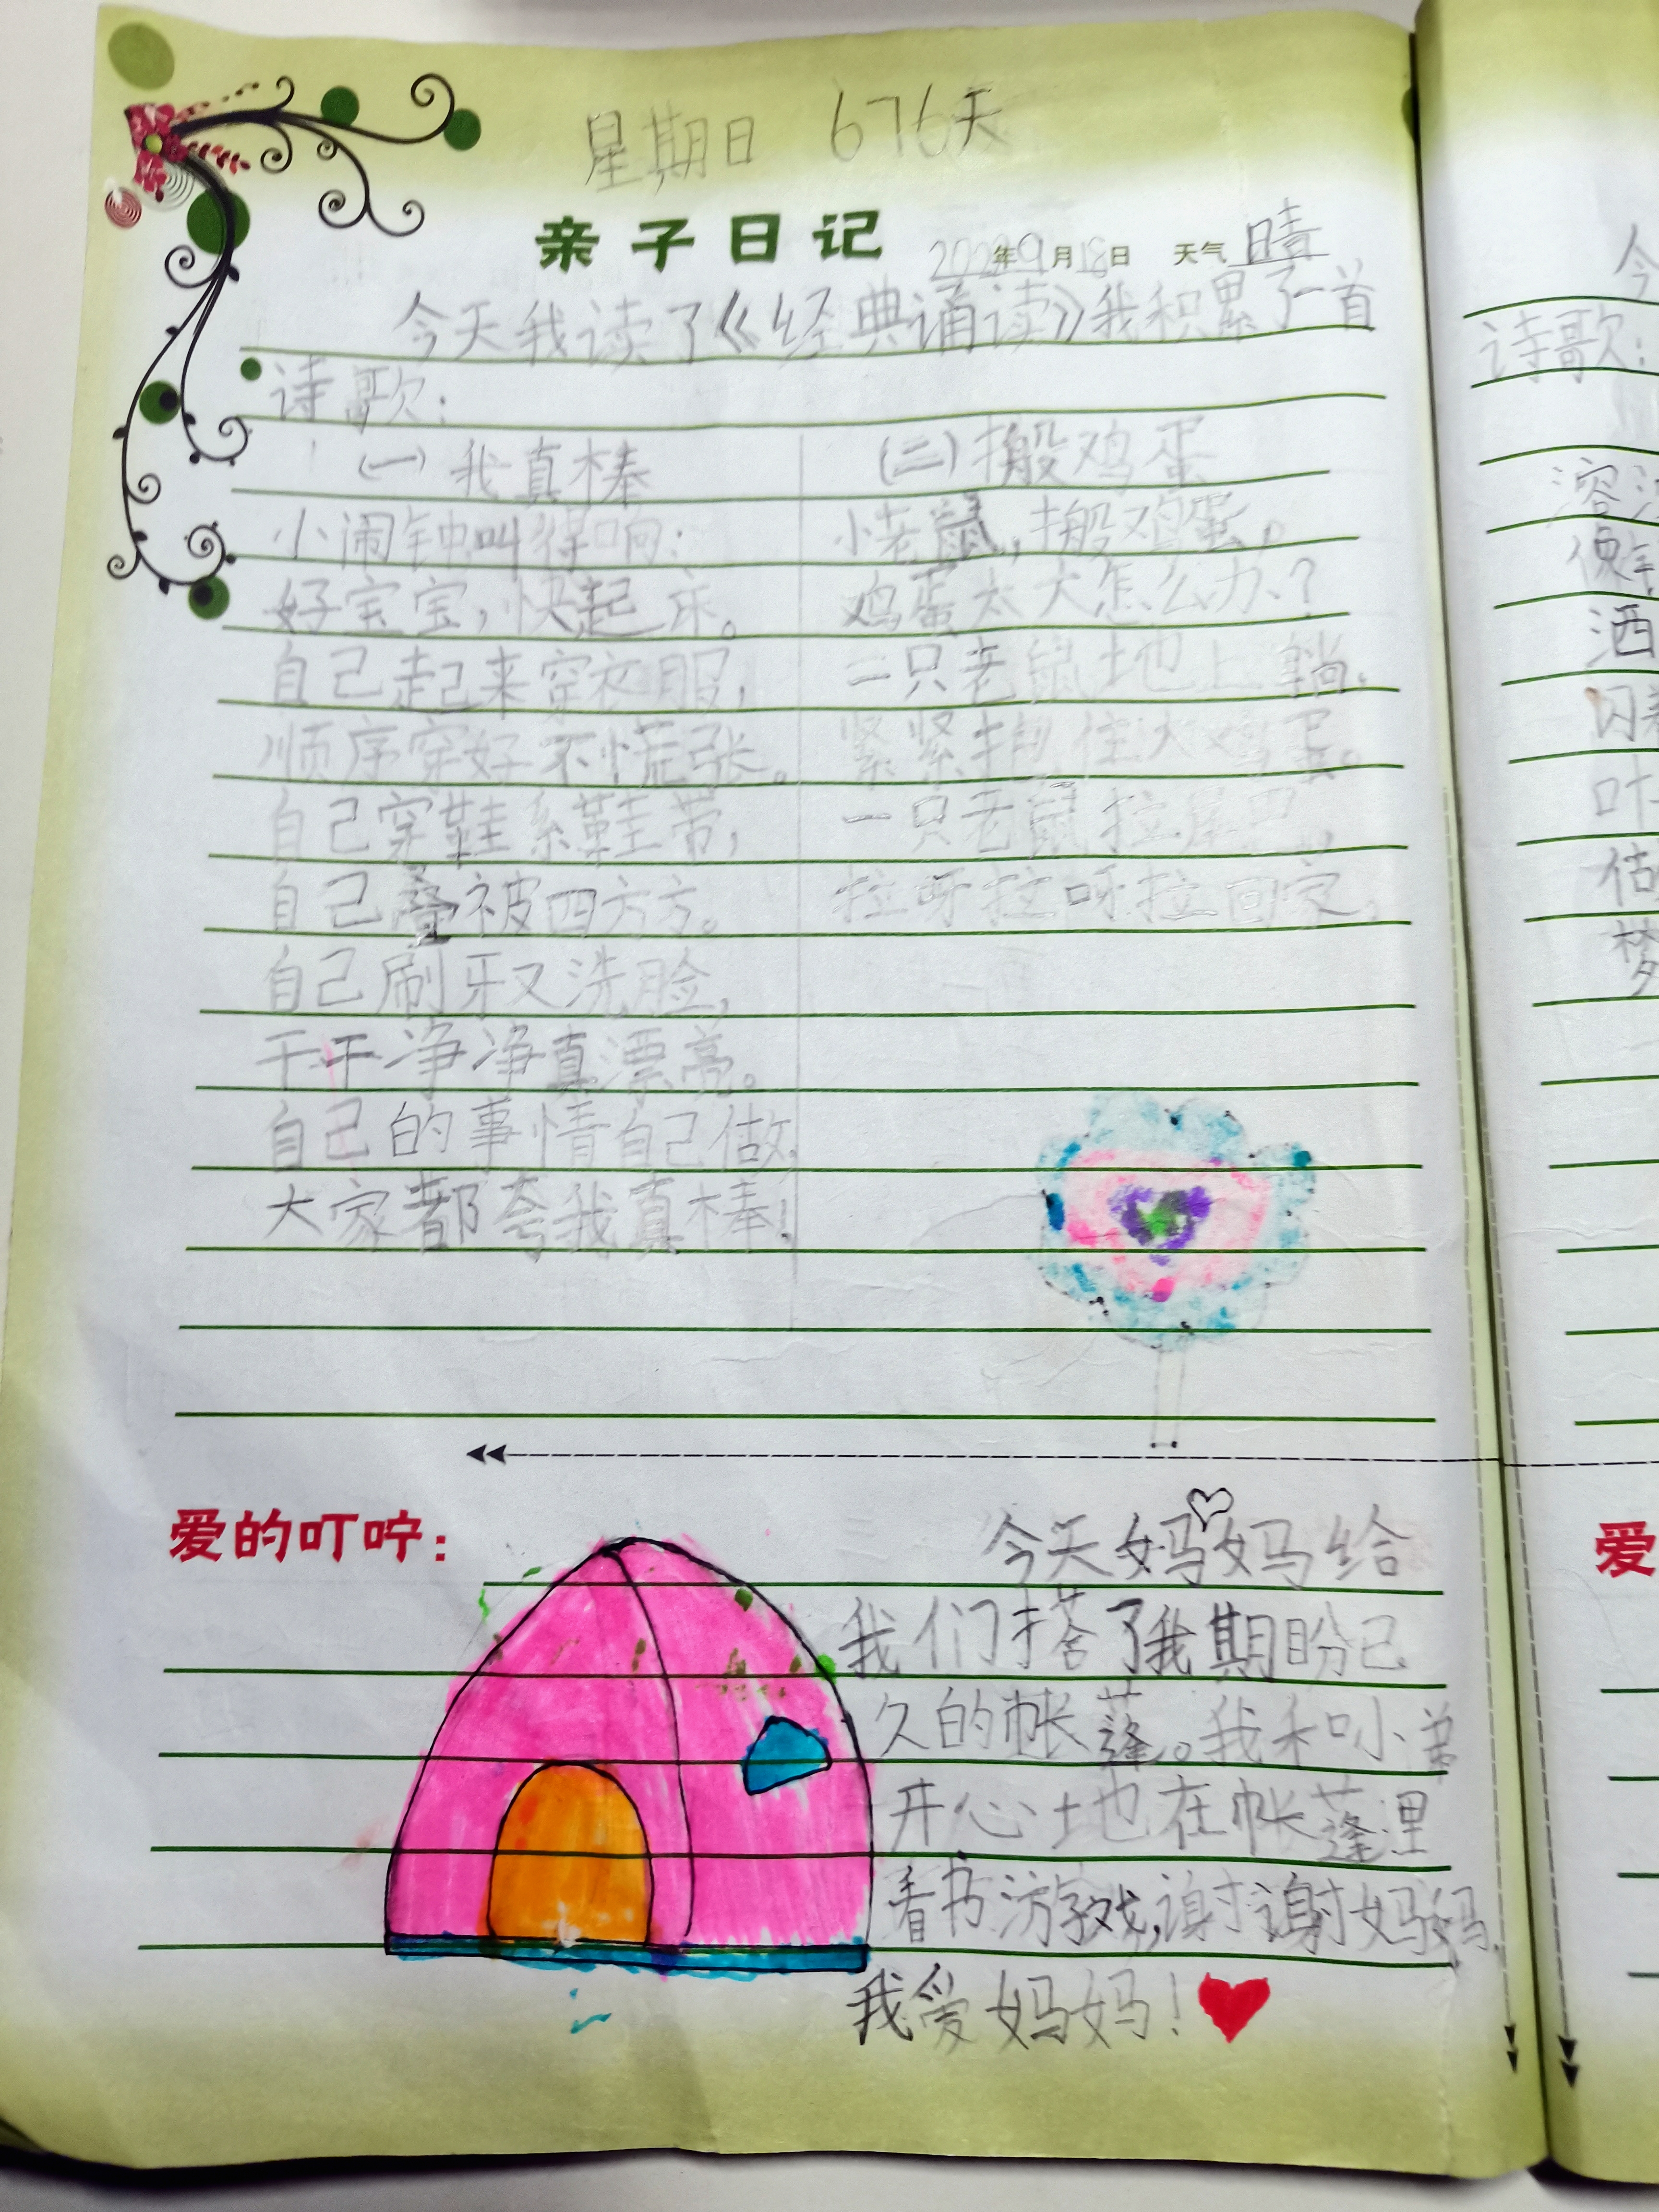 星期日 676天
亲子日记 2022年9月18日 天气 晴
今天我读了《经典诵读》我积累了一首
诗歌：
（一）我真棒
小闹钟叫得响：
好宝宝，快起床。
自己起来穿衣服，
顺序穿好不慌张。
自己穿鞋系鞋带，
自己叠被四方方。
自己刷牙又洗脸，
干干净净真漂亮。
自己的事情自己做，
大家都夸我真棒！
（二）搬鸡蛋
小老鼠，搬鸡蛋。
鸡蛋太大怎么办？
一只老鼠地上躺，
紧紧抱住大鸡蛋。
一只老鼠拉尾巴，
拉呀拉呀拉回家。
爱的叮咛：
今天妈妈给
我们搭了我期盼已
久的帐篷。我和小弟
开心地在帐篷里
看书游戏，谢谢妈妈，
我爱妈妈！
今
诗歌：
洒
梦
爱